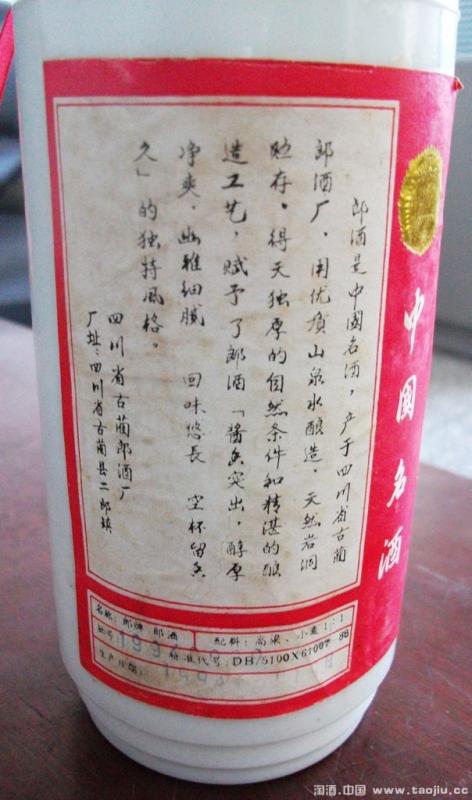 郎酒是中國名酒，产于四川省古蔺
郎酒厂，用优质山泉水酿造，天然岩洞
贮存。得天独厚的自然条件和精湛的酿
造工艺，赋予了郎酒「酱香突出，醇厚
净爽，幽雅细腻 回味悠長 空杯留香
久」的独特風格。
四川省古藺郎酒厂
厂址：四川省古藺县二郎镇
中國名酒
名称：郎牌 郎酒
配料：高梁、小麦1:1
批号：
标准代号：DB/5100X61007-88
生产日期：
淘酒.中国 www.taojiu.cc